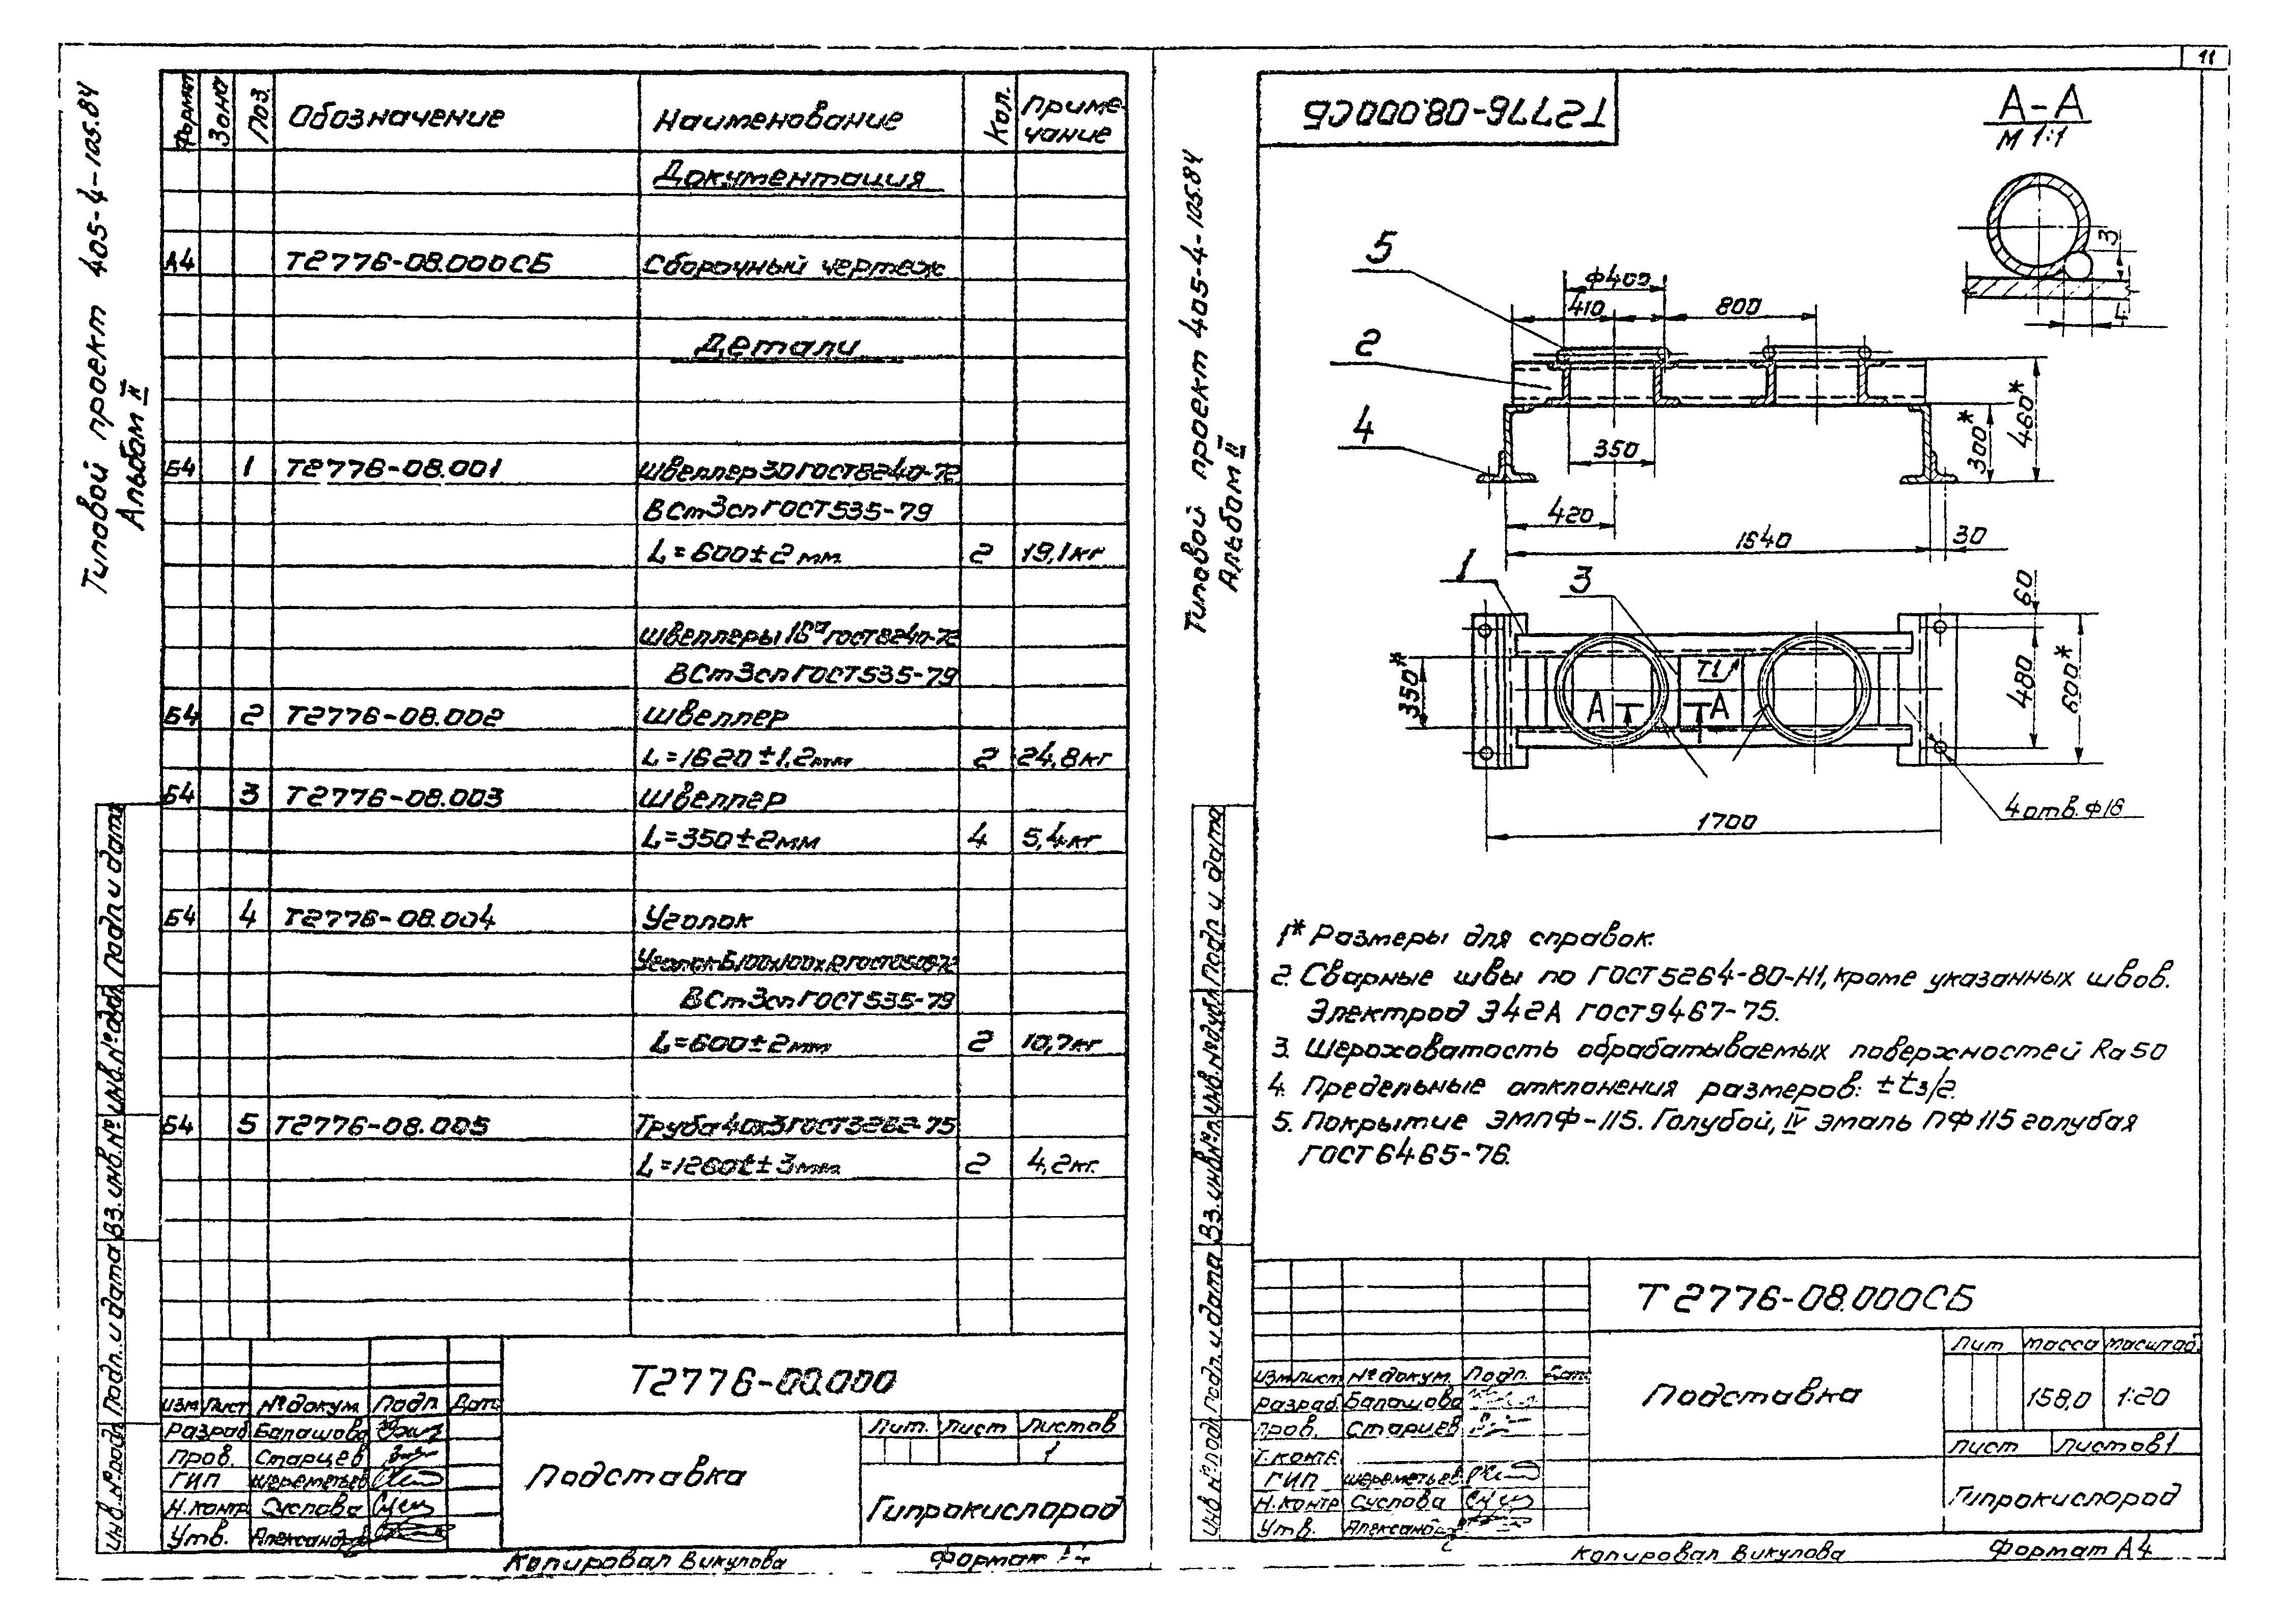 11
Типовой проект 405-4-105.84
Альбом II
Формат Зона Поз. Обозначение Наименование Кол. Приме-
чание
Документация
А4 Т2776-08.000СБ Сборочный чертеж
Детали
Б4 1 Т2776-08.001 Швеллер 30 ГОСТ 8240-72
ВСт3сп ГОСТ 535-79
L=600±2 мм 2 19,1кг
Швеллеры 16а ГОСТ 8240-72
ВСт3сп ГОСТ 535-79
Б4 2 Т2776-08.002 Швеллер
L=1620±1,2мм 2 24,8кг
Б4 3 Т2776-08.003 Швеллер
L=350±2мм 4 5,4кг
Б4 4 Т2776-08.004 Уголок
Уголок Б100х100х12 ГОСТ
ВСт3сп ГОСТ 535-79
L=600±2мм 2 10,7кг
Б4 5 Т2776-08.005 Труба 40х3 ГОСТ 3262-75
L=1260±3мм 2 4,2кг.
Подп. и дата
Инв.№дубл
Вз. инв.№
Подп. и дата
Инв.№подл
Изм Лист №докум. Подп Дата
Разраб Балашова
Пров. Старцев
ГИП Шереметьев
Н.контр Суслова
Утв. Александров
Т2776-00.000
Подставка
Лит. Лист Листов
1
Гипрокислород
Копировал Викулова Формат А4
Типовой проект 405-4-105.84
Альбом II
Т2776-08.000СБ
А-А
М 1:1
3
4
5
2
4
ф400
410
800
350
420
1640
30
300*
460*
1
3
350*
Т1
А А
60
480
600*
4 отв. ф16
1700
1* Размеры для справок.
2. Сварные швы по ГОСТ 5264-80-Н1, кроме указанных швов.
Электрод Э42А ГОСТ 9467-75.
3. Шероховатость обрабатываемых поверхностей Ra 50
4. Предельные отклонения размеров: ±t3/2.
5. Покрытие ЭМПФ-115. Голубой, IV эмаль ПФ 115 голубая
ГОСТ 6465-76.
Подп. и дата
Инв.№дубл
Вз. инв№
Подп. и дата
Инв№подл
Изм Лист №докум. Подп. Дата
Разраб. Балашова
Пров. Старцев
Т.контр.
ГИП Шереметьев
Н.контр Суслова
Утв. Александров
Т2776-08.000СБ
Подставка
Лит Масса Масштаб
158,0 1:20
Лист Листов 1
Гипрокислород
Копировал Викулова Формат А4